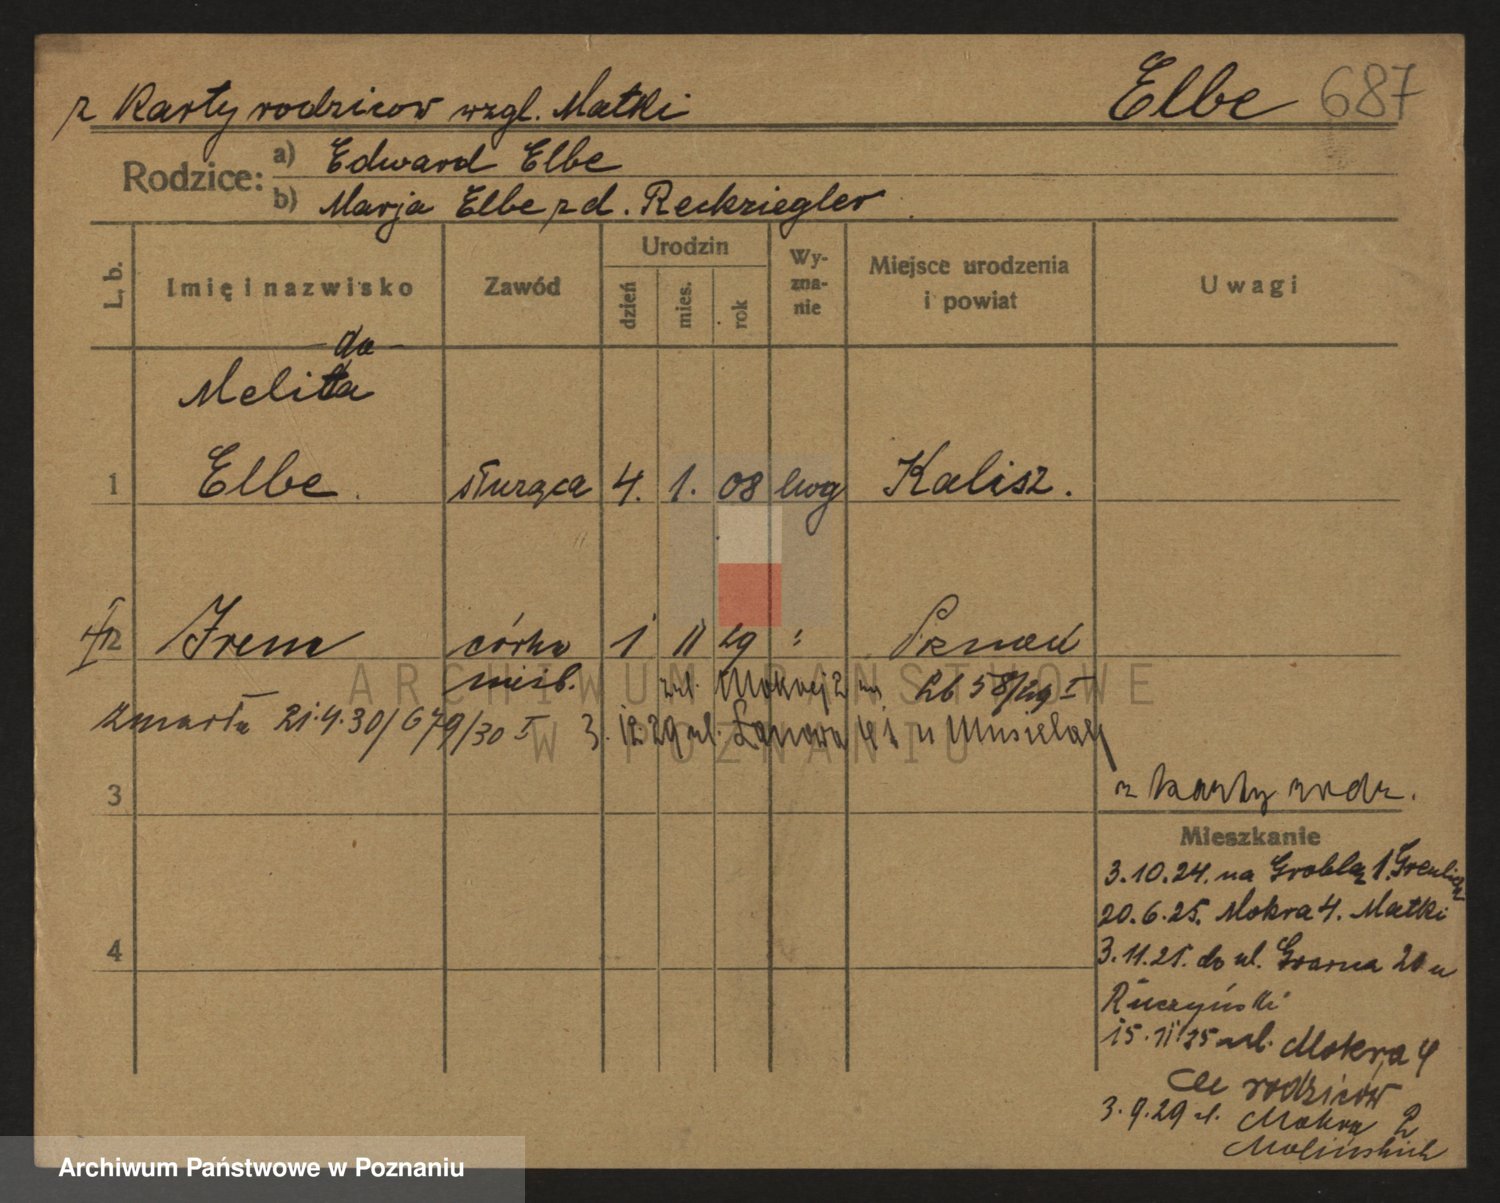 z Karty rodziców wzgl. Matki
Elbe 687
Rodzice: a) Edward Elbe
b) Marja Elbe z d. Reckziegler
L. b. Imię i nazwisko Zawód Urodzin dzień mies. rok Wyznanie Miejsce urodzenia i powiat Uwagi
da
Melitta
1 Elbe służąca 4. 1. 08 ewg Kalisz.
2 Irena córka 1 11 29 " Poznań
nieśl. ul. Mokrej 2 26 58/29 I
zmarła 21.4.30/ 679/30 I 3. 12. 29 ul. Łanowa u Musielak
3 z karty rodz.
Mieszkanie
3.10.24. na Groblą 1.
20.6.25. Mokra 4. Matki
4 3.11.25. do ul. Gwarna 20 u
Ruczyński
15.11.25 ul. Mokra 4
do rodziców
3.9.29 ul. Mokra 2
Molińskich
ARCHIWUM PAŃSTWOWE
W POZNANIU
Archiwum Państwowe w Poznaniu